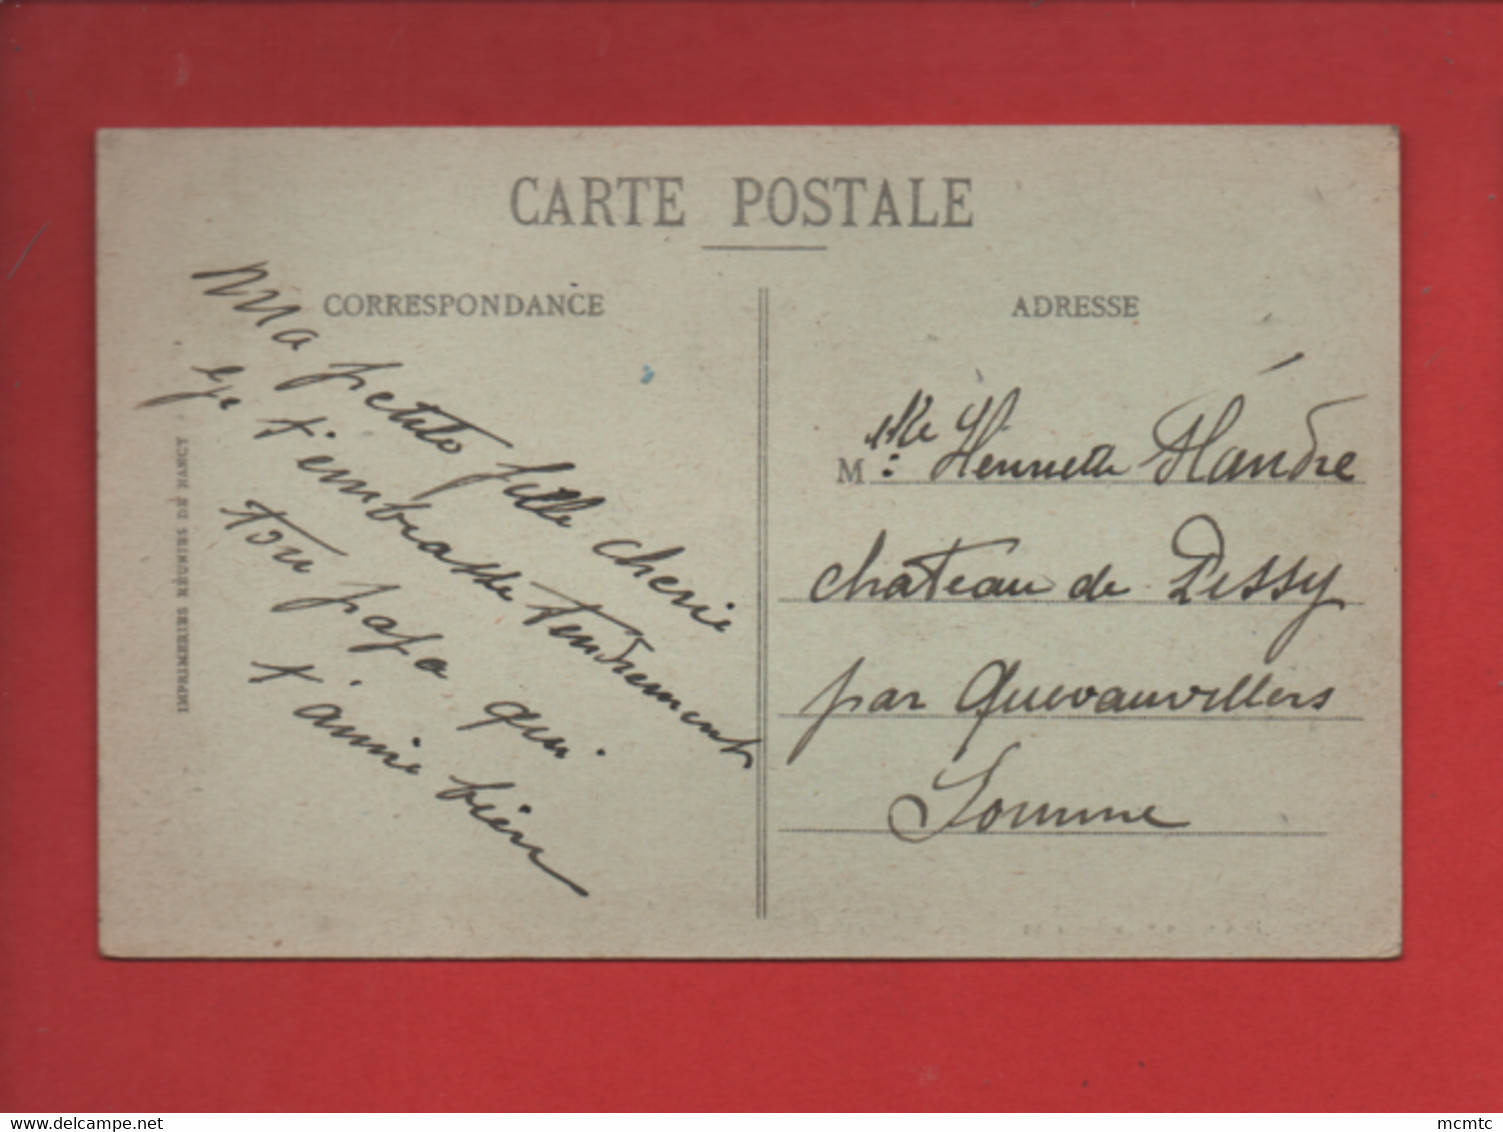 CARTE POSTALE
CORRESPONDANCE
ADRESSE
Ma petite fille cherie
Je t'embrasse tendrement
ton papa qui
t'aime bien
M.lle Henriette Flandre
chateau de Pissy
par Quevauvillers
Somme
IMPRIMERIES RÉUNIES DE NANCY
www.delcampe.net
mcmtc